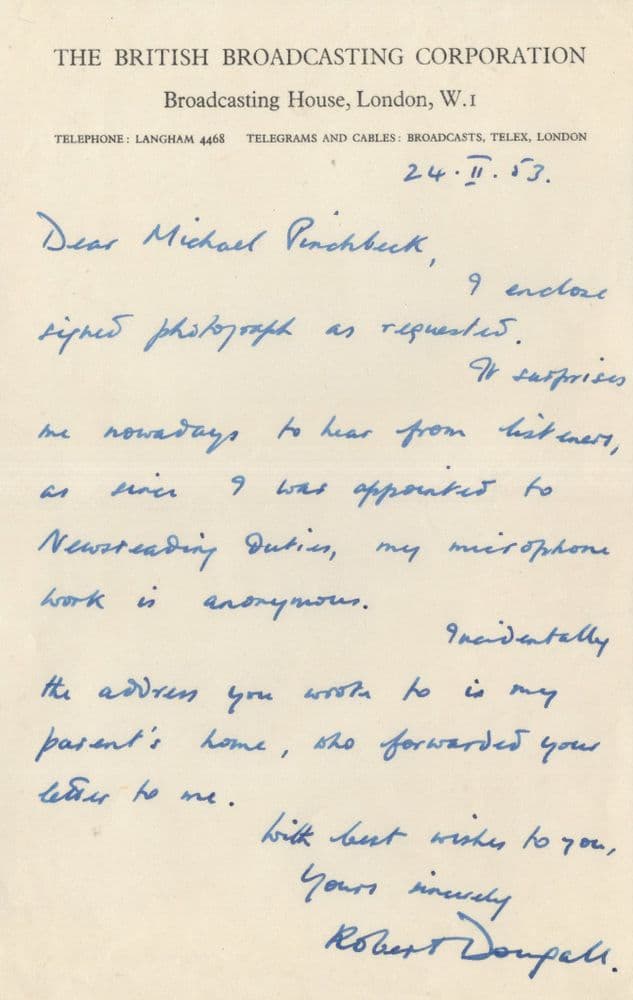 THE BRITISH BROADCASTING CORPORATION
Broadcasting House, London, W.1
TELEPHONE: LANGHAM 4468 TELEGRAMS AND CABLES: BROADCASTS, TELEX, LONDON
24.II.53.
Dear Michael Pinchbeck,
I enclose
signed photograph as requested.
It surprises
me nowadays to hear from listeners,
as since I was appointed to
Newsreading Duties, my microphone
work is anonymous.
Incidentally
the address you wrote to is my
parent's home, who forwarded your
letter to me.
With best wishes to you,
Yours sincerely
Robert Dougall.